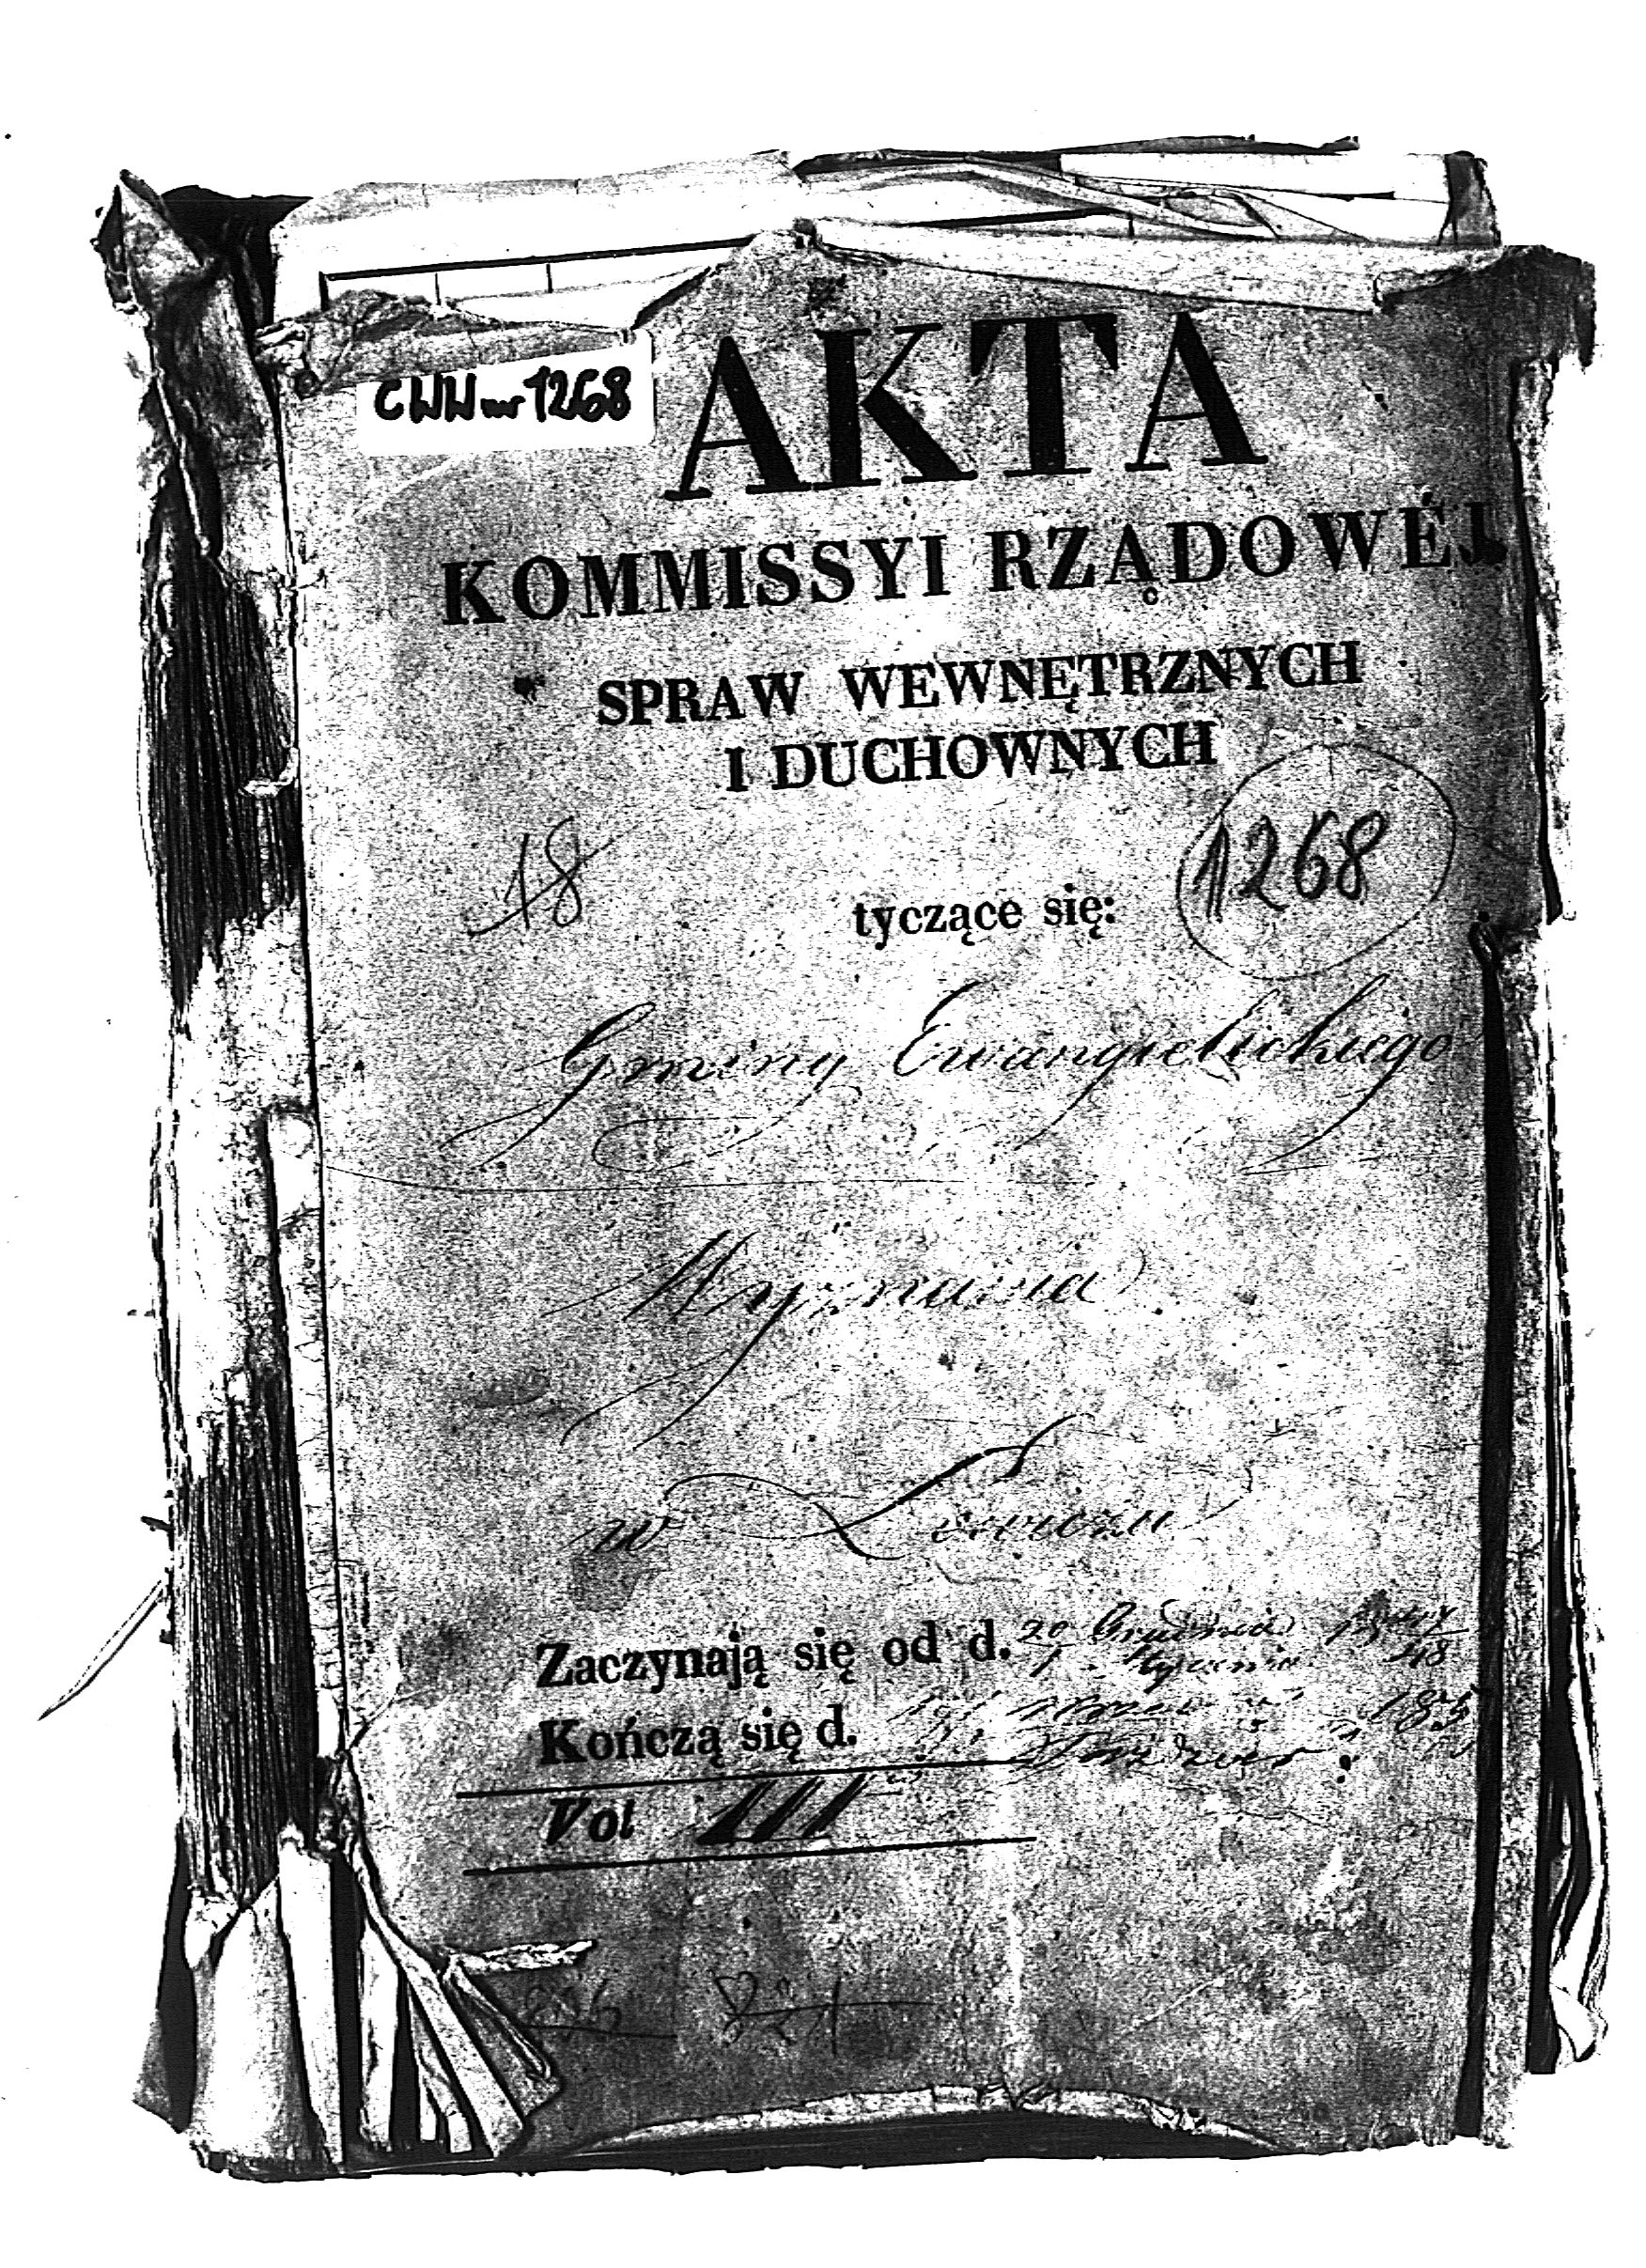 CWW nr 1268
AKTA
KOMMISSYI RZĄDOWÉJ
SPRAW WEWNĘTRZNYCH
I DUCHOWNYCH
18
1268
tyczące się:
Gminy Ewangielickiego
Wyznania
w Łowiczu
Zaczynają się od d. 20 Grudnia
1 Stycznia 48
Kończą się d. 185
Vol III